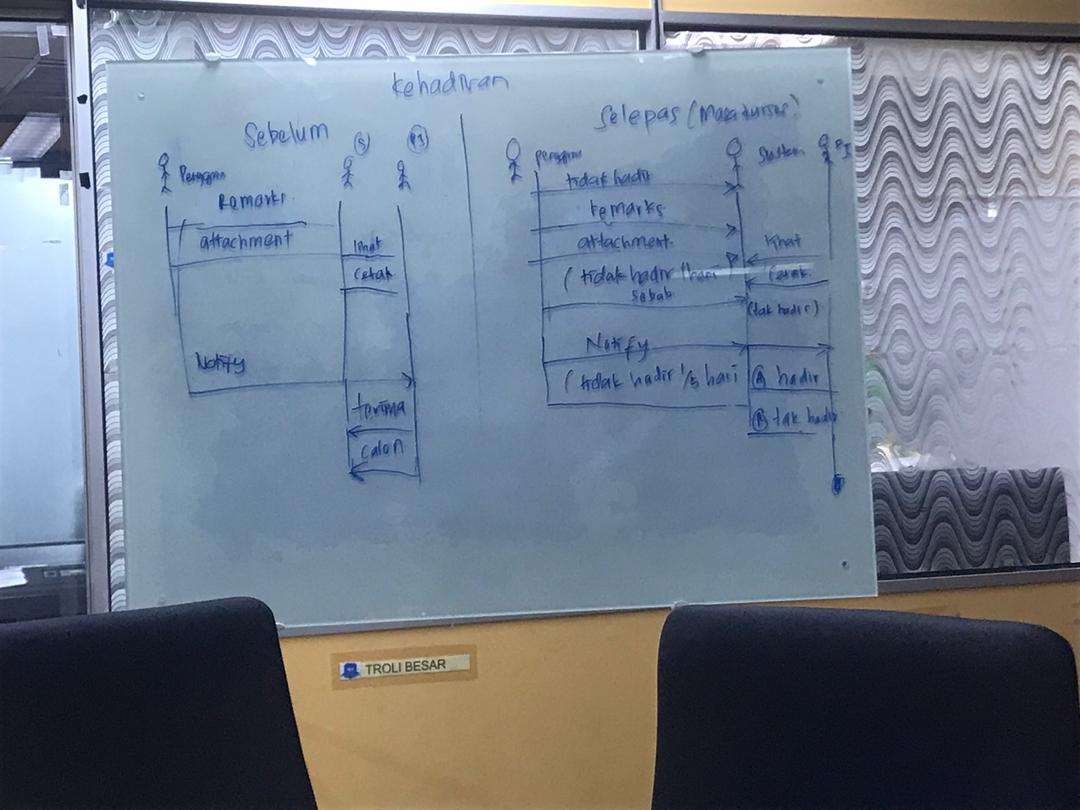 Kehadiran
Sebelum
(S)
Remarks
attachment
lihat
Cetak
Notify
terima
calon
Selepas (Masa kursus)
tidak hadir
remarks
attachment
lihat
(tidak hadir 1 hari
Cetak
sebab
(tak hadir)
Notify
(tidak hadir 1/5 hari
(A) hadir
(B) tak hadir
TROLI BESAR